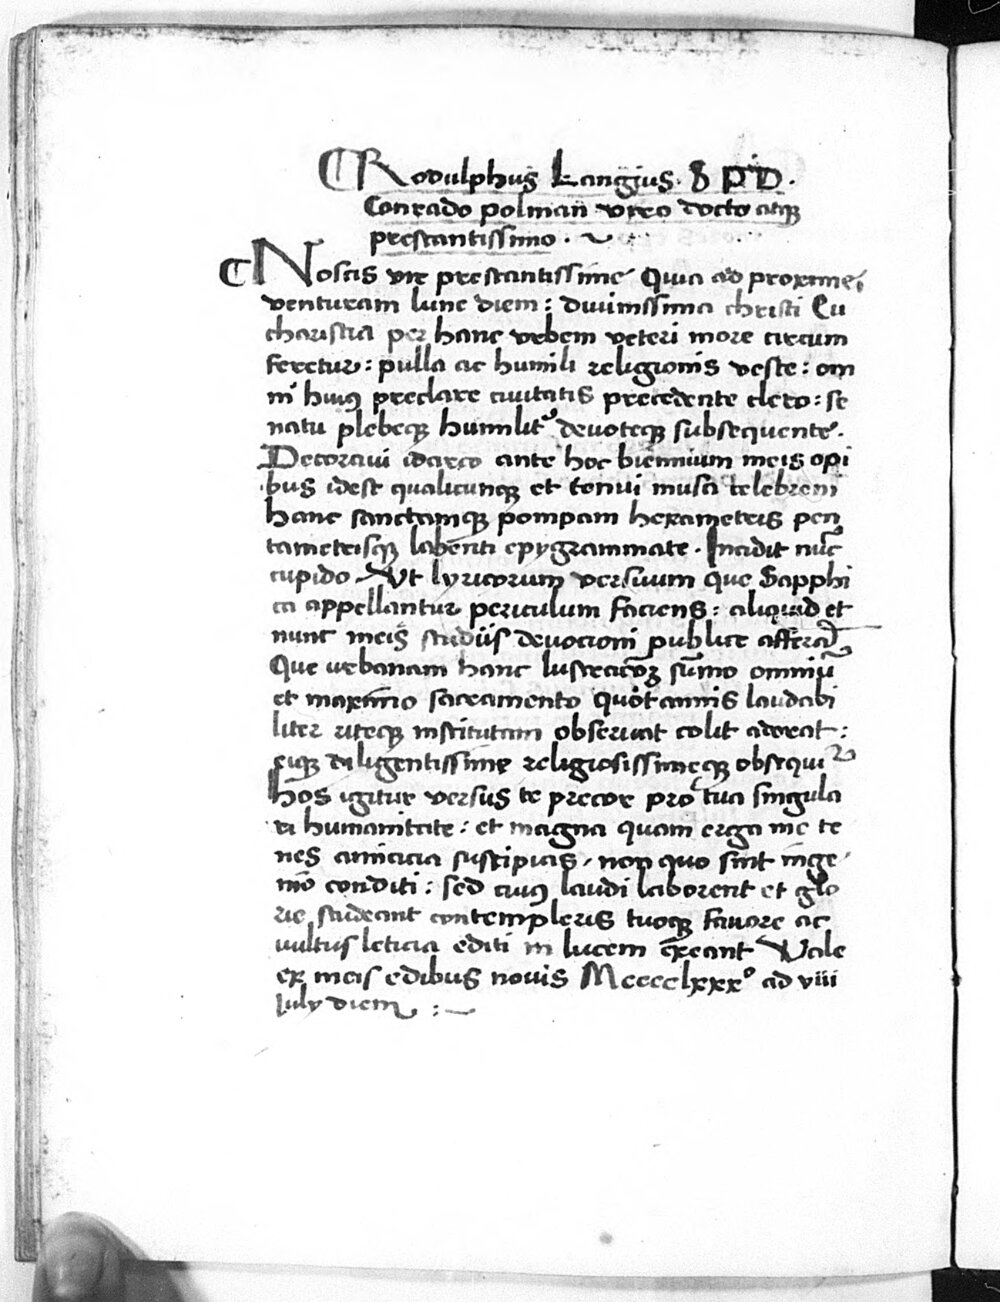 Rodulphus Langius. S P D.
Conrado polman viro docto atq
prestantissimo.
Noscis vir prestantissime Quia ad proxime
venturam lune diem: diuinissima christi Eu
charistia per hanc vrbem veteri more circum
feretur: pulla ac humili religionis veste: om
ni huiq preclare ciuitatis precedente clero: se
natu plebeq humilit deuoteq subsequente.
Decoraui idcirco ante hoc biennium meis opi
bus idest qualicunq et tenui musa celebrem
hanc sanctamq pompam hexametris pen
tametrisq labenti epygrammate. Incidit nuc
cupido Vt lyricorum versuum que Sapphi
ca appellantur periculum faciens: aliquid et
nunc meis studiis deuocioni publice afferā
Que vrbanam hanc lustracōꝫ sūmo omniū
et maximo sacramento quotannis laudabi
liter riteq institutam obseruat colit adorat:
eiq diligentissime religiosissimeq obsequir
hos igitur versus te precor pro tua singula
ri humanitate: et magna quam erga me te
nes amicicia suscipias, non quo sint inge
nio conditi: sed cuiq laudi laborent et glo
rie studeant contempleris tuoq fauore ac
vultus leticia editi in lucem exeant Vale
ex meis edibus nouis Mcccclxxxº ad viii
iuly diem :